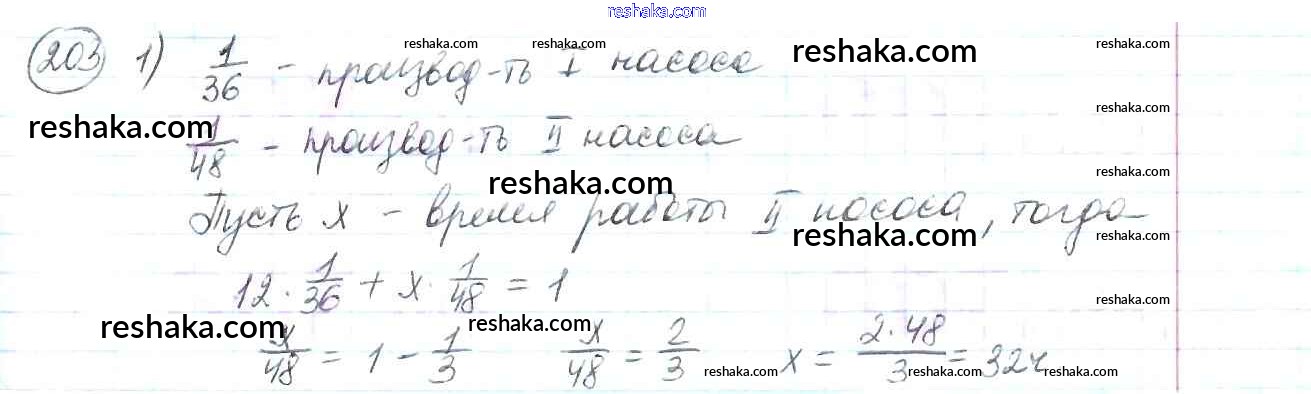 reshaka.com
203 1) 1/36 - производ-ть I насоса
reshaka.com reshaka.com reshaka.com reshaka.com
reshaka.com
reshaka.com
1/48 - производ-ть II насоса
reshaka.com
reshaka.com
Пусть x - время работы II насоса, тогда
reshaka.com reshaka.com
12 · 1/36 + x · 1/48 = 1
reshaka.com
reshaka.com reshaka.com
x/48 = 1 - 1/3 x/48 = 2/3 x = 2·48/3 = 32ч
reshaka.com reshaka.com reshaka.com